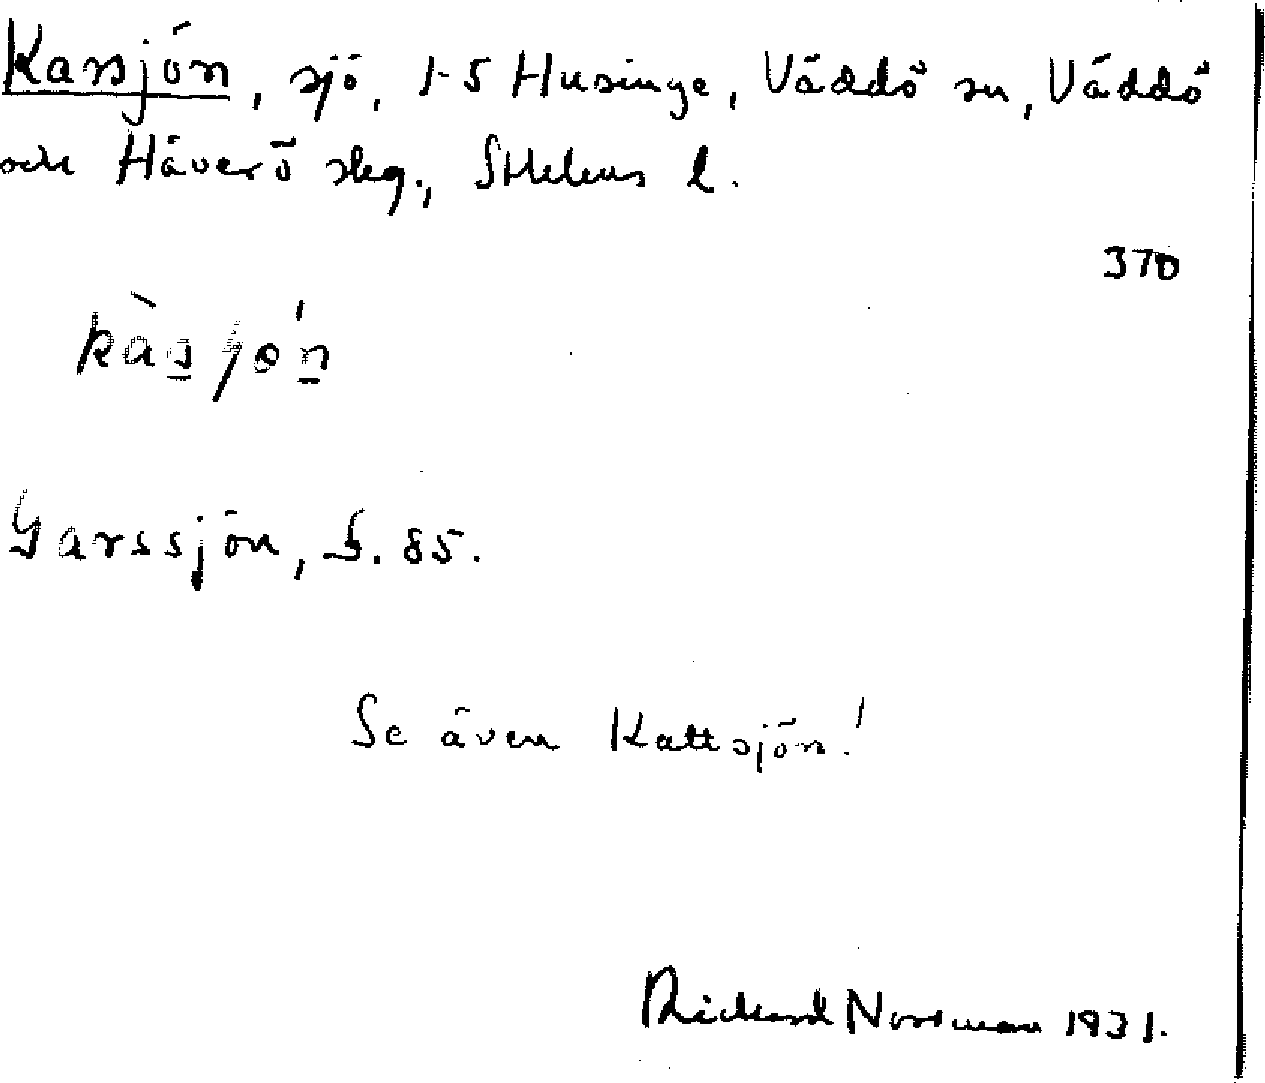 Karsjön, sjö, 1-5 Husinge, Väddö sn, Väddö
och Häverö skg., Sthlms l.
370
kàsjón
Garssjön, S. 85.
Se även Kattsjön!
Rickard Norrman 1931.